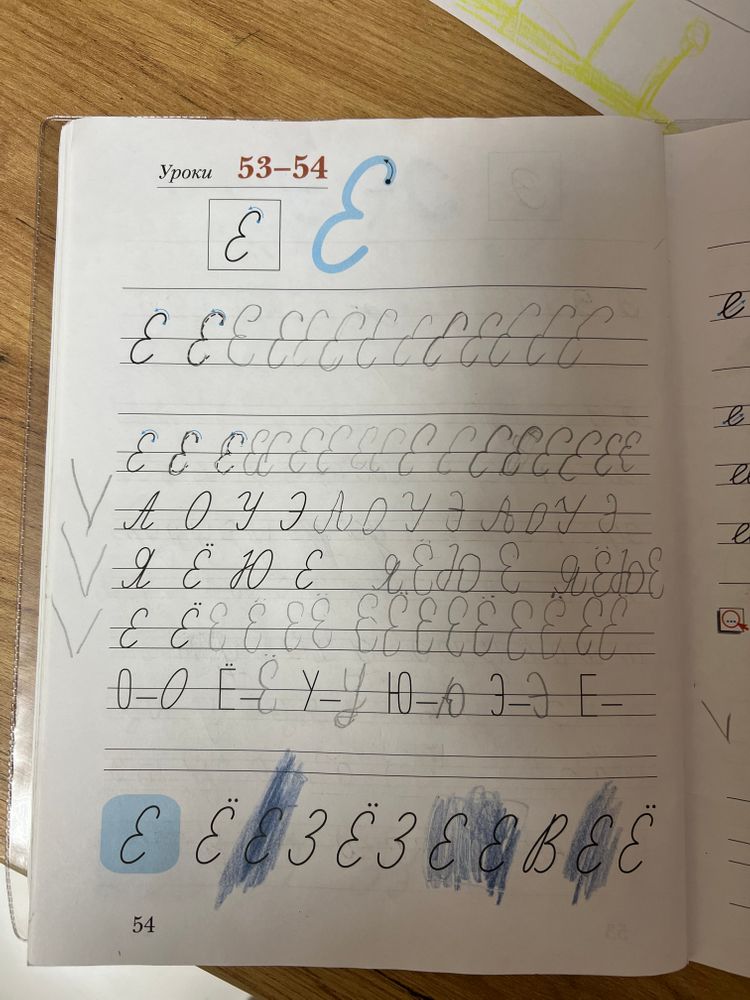 Уроки 53–54
Е Е
Е Е Е Е Е Е Е Е Е Е Е Е Е
Е Е Е Е Е Е Е Е Е Е Е Е Е Е Е Е
А О У Э А О У Э А О У Э
Я Ё Ю Е Я Ё Ю Е Я Ё Ю Е
Е Ё Е Ё Е Ё Е Ё Е Ё Е Ё Е Ё
О–О Ё–Ё У–У Ю–Ю Э–Э Е–
Е Ё Е З Ё З Е Е В Е Ё
54